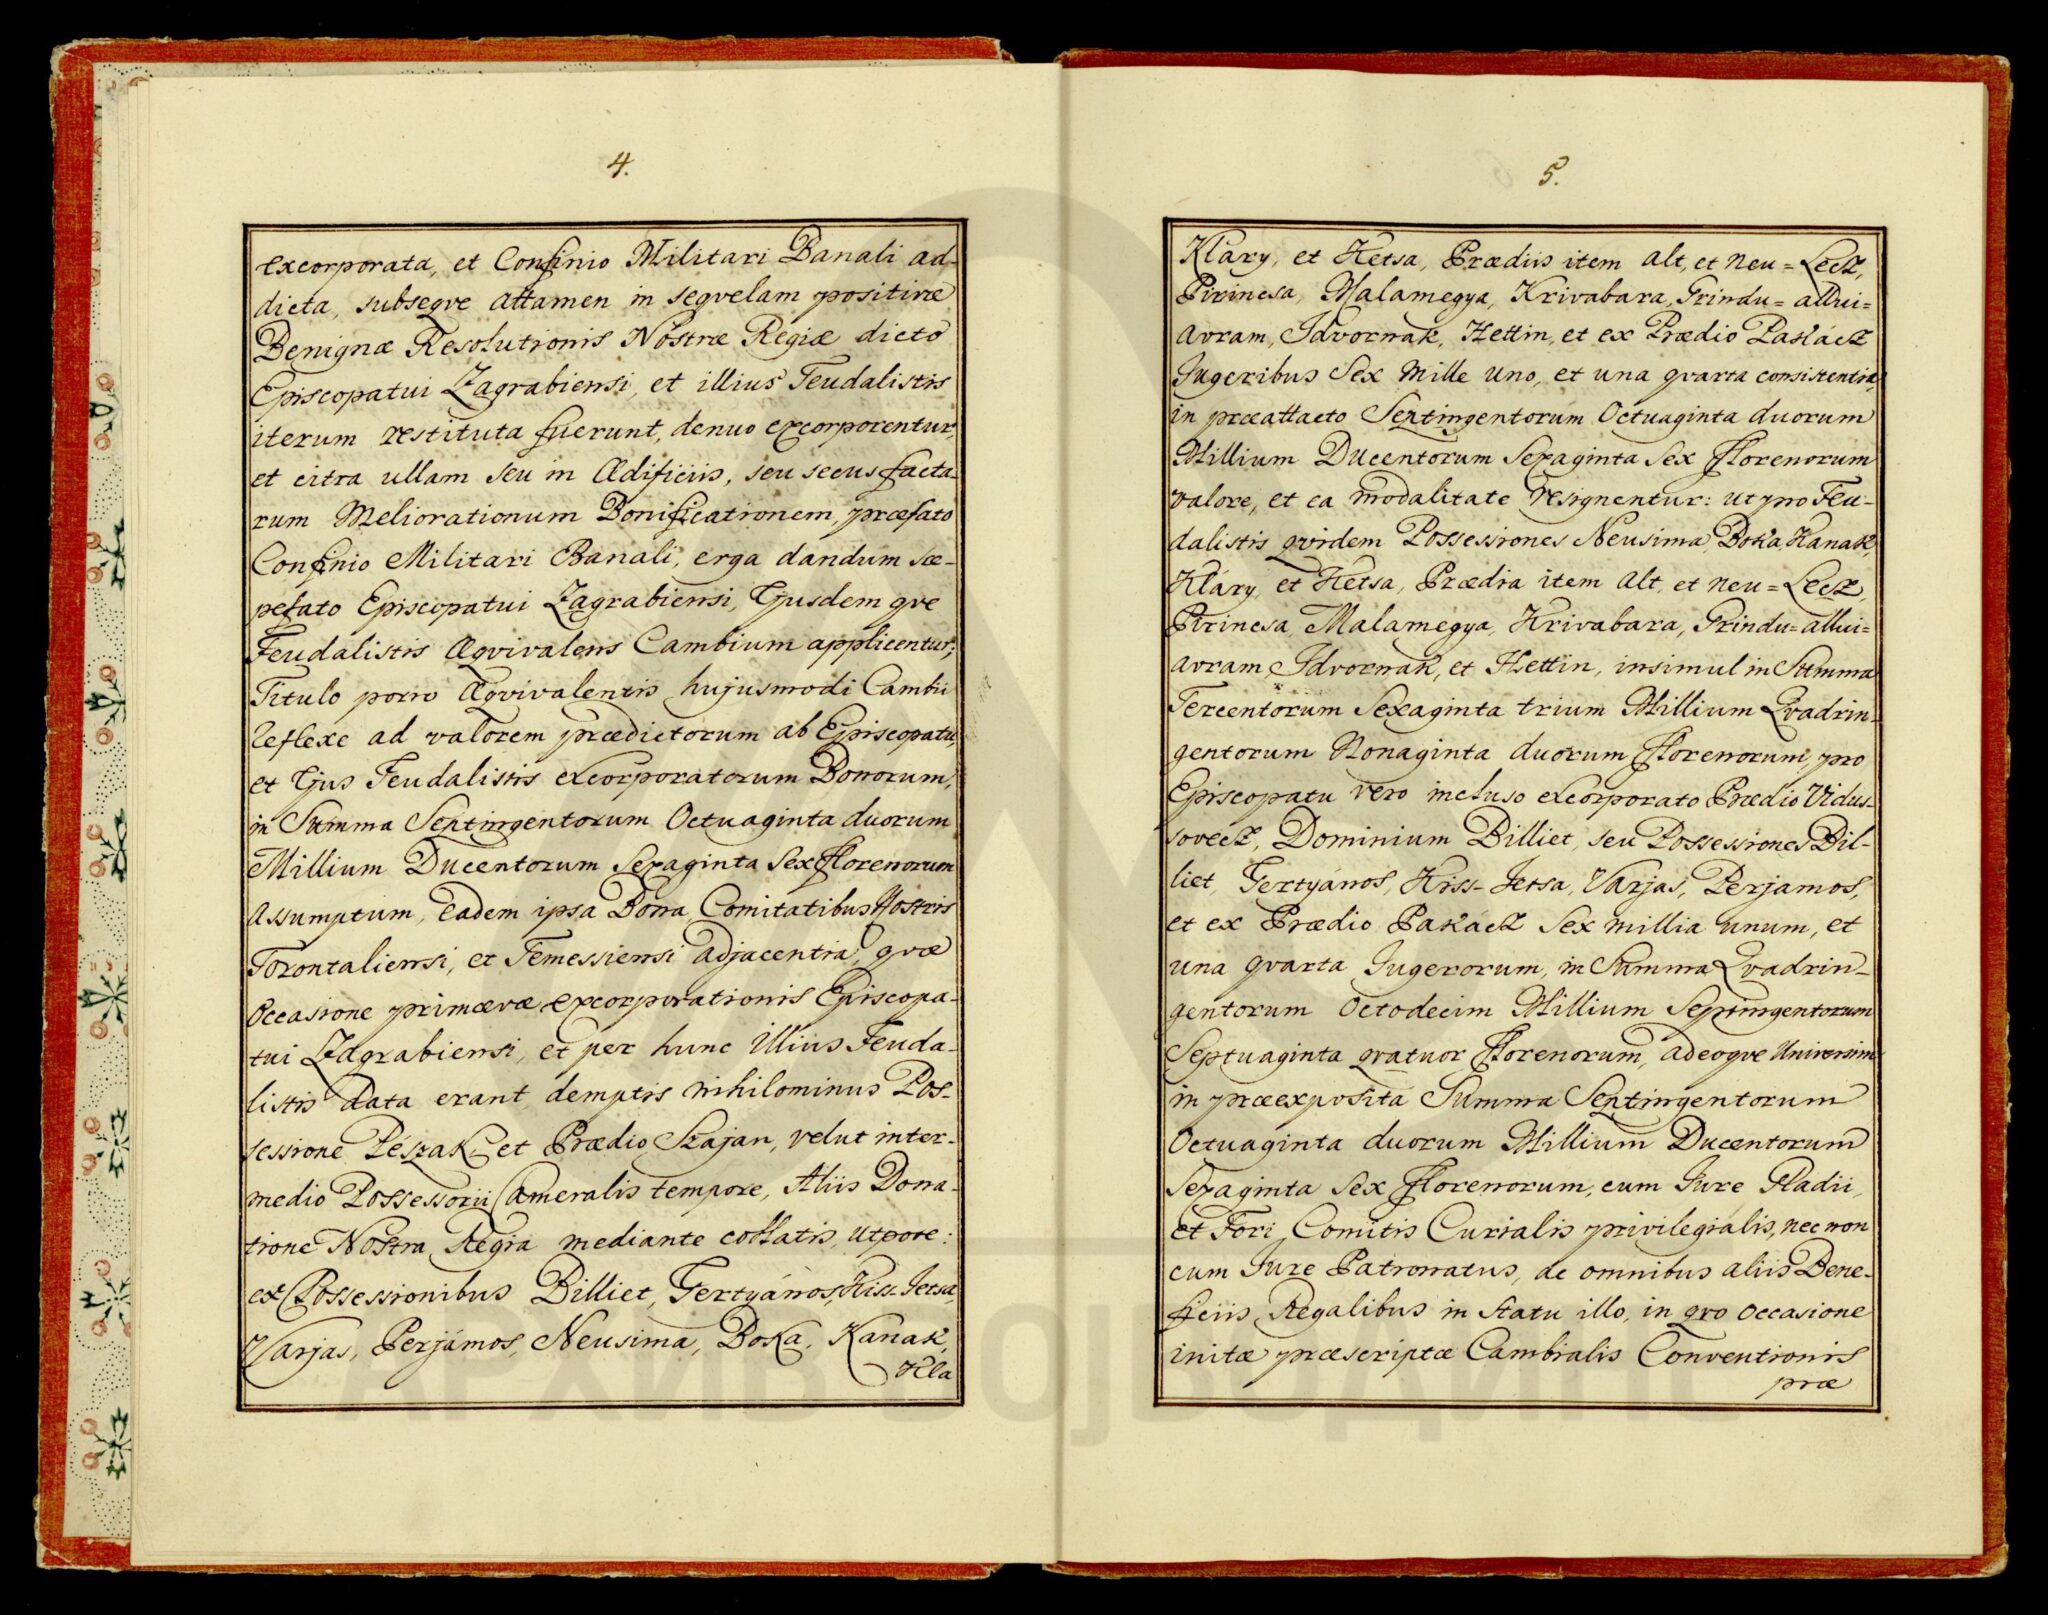 4.
excorporata, et Confinio Militari Banali ad-
dicta, subseqve attamen in seqvelam positivæ
Benignæ Resolutionis Nostræ Regiæ dicto
Episcopatui Zagrabiensi, et illius Feudalistis
iterum restituta fuerunt, denuo excorporentur,
et citra ullam seu in Ædificiis, seu secus facta-
rum Meliorationum Bonificationem, præfato
Confinio Militari Banali, erga dandum sæ-
pefato Episcopatui Zagrabiensi, Ejusdem qve
Feudalistis Æqvivalens Cambium applicentur;
Titulo porro Æqvivalentis hujusmodi Cambii
reflexe ad valorem prædictorum ab Episcopatu,
et Ejus Feudalistis excorporatorum Bonorum,
in Summa Septingentorum Octuaginta duorum
Millium Ducentorum Sexaginta Sex Florenorum
assumptum, Eadem ipsa Bona Comitatibus Nostris
Torontaliensi, et Temessiensi adjacentia, qvæ
Occasione primævæ excorporationis Episcopa-
tui Zagrabiensi, et per hunc Illius Feuda-
listis data erant, demptis nihilominus Pos-
sessione Pészak, et Prædio Szajan, velut inter-
medio Possessorii Cameralis tempore, Aliis Dona-
tione Nostra Regia mediante collatis, utpote:
ex Possessionibus Billiet, Fertyános, Kiss-Jetsa,
Varjas, Perjámos, Neusina, Boka, Kanak,
Kla
5.
Kláry, et Hetsa, Prædiis item Alt, et Neu=Lecz,
Pirinesa, Malamegya, Krivabara, Grindu=allui=
Avram, Idvornak, Hettin, et ex Prædio Pakácz
Jugeribus Sex Mille Uno, et una qvarta consistentia,
in præattacto Septingentorum Octuaginta duorum
Millium Ducentorum Sexaginta Sex Florenorum
valore, et ea modalitate resignentur: ut pro Feu-
dalistis qvidem Possessiones Neusina, Boka, Kanak,
Kláry, et Hetsa, Prædia item Alt, et Neu=Lecz,
Pirinesa, Malamegya, Krivabara, Grindu=allui=
Avram, Idvornak, et Hettin, insimul in Summa
Tercentorum Sexaginta trium Millium Qvadrin-
gentorum Nonaginta duorum Florenorum, pro
Episcopatu vero incluso excorporato Prædio Vidus-
sovecz, Dominium Billiet, seu Possessiones Bil-
liet, Fertyános, Kiss-Jetsa, Varjas, Perjamos,
et ex Prædio Pakácz Sex millia unum, et
una qvarta Jugerorum, in Summa Qvadrin-
gentorum Octodecim Millium Septingentorum
Septuaginta qvatuor Florenorum, adeoqve Universim
in præexposita Summa Septingentorum
Octuaginta duorum Millium Ducentorum
Sexaginta Sex Florenorum, cum Jure Gladii,
et Fori Comitis Curialis privilegialis, nec non
cum Jure Patronatus, de omnibus aliis Bene-
ficiis Regalibus in Statu illo, in qvo Occasione
initæ præscriptæ Cambialis Conventionis
præ
АРХИВ ВОЈВОДИНЕ